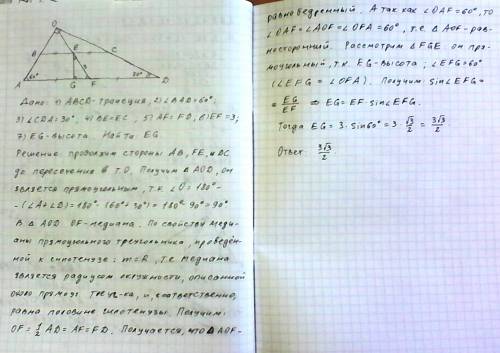 O
B
E
C
3
A
60°
G
F
30°
D
Дано: 1) ABCD-трапеция, 2) ∠BAD=60°;
3) ∠CDA=30°, 4) BE=EC, 5) AF=FD, 6) EF=3;
7) EG-высота. Найти EG
Решение: продолжим стороны AB, FE, и DC
до пересечения в т. O. Получим △AOD, он
является прямоугольным, т.к ∠O=180°-
-(∠A+∠D)=180°-(60°+30°)=180°-90°=90°
В △AOD OF-медиана. По свойству меди-
аны прямоугольного треугольника, проведён-
ной к гипотенузе: m=R, т.е. медиана
является радиусом окружности, описанной
около прямоуг. треуг-ка, и, соответственно,
равна половине гипотенузы. Получим:
OF=1/2 AD=AF=FD. Получается, что △AOF-
равнобедренный. А так как ∠OAF=60°, то
∠OAF=∠AOF=∠OFA=60°, т.е. △AOF-рав-
носторонний. Рассмотрим △FGE: он пря-
моугольный, т.к. EG-высота; ∠EFG=60°
(∠EFG=∠OFA). Получим: sin∠EFG=
=EG/EF ⇒ EG=EF·sin∠EFG.
Тогда EG=3·sin60°=3·√3/2=3√3/2
Ответ: 3√3/2.